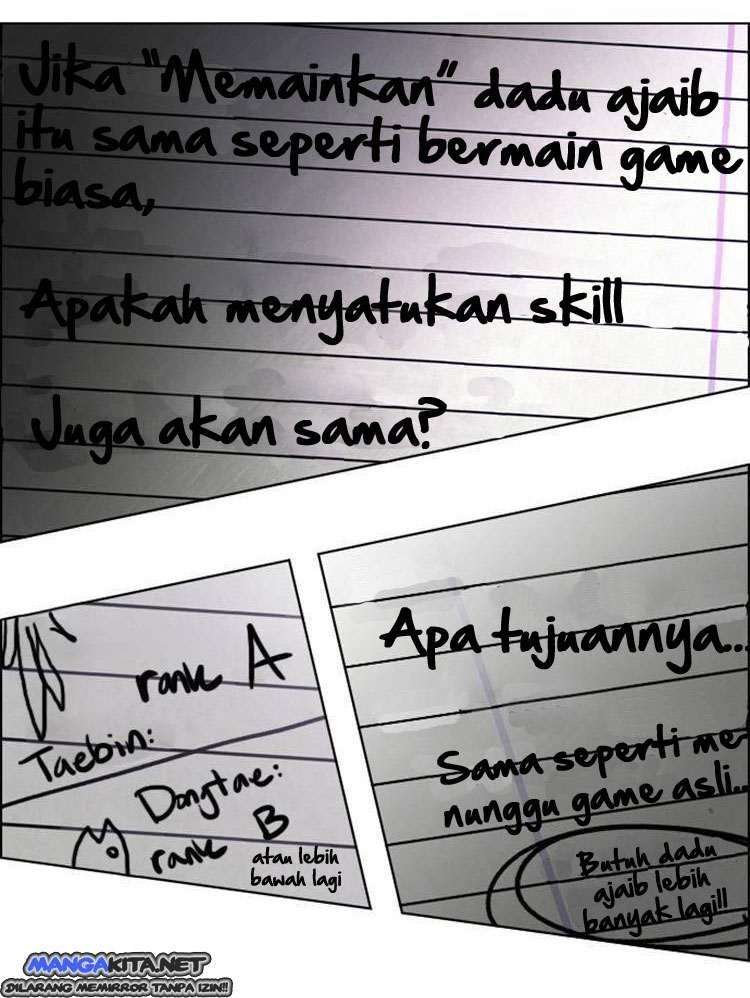 Jika "Memainkan" dadu ajaib
itu sama seperti bermain game
biasa,
Apakah menyatukan skill
Juga akan sama?
rank A
Taebin:
Dongtae:
rank B
atau lebih
bawah lagi
Apa tujuannya...
Sama seperti me
nunggu game asli...
Butuh dadu
ajaib lebih
banyak lagi!!
MANGAKITA.NET
DILARANG MEMIRROR TANPA IZIN!!